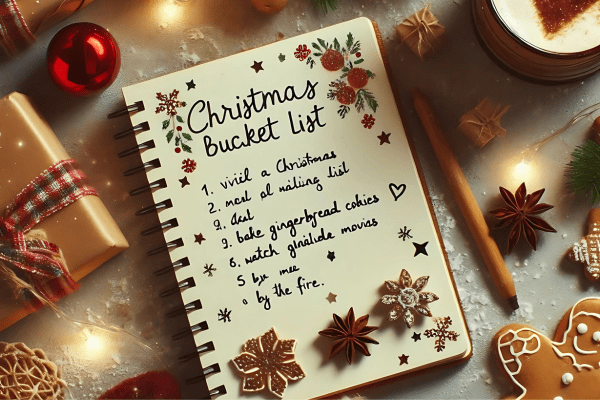 Christmas
Bucket List
1. viviel a Christmas
2. mest ol maliing list
9. deat
9. bake gingerbread cokies
6. watch glnlilide movias
5 bye mee
0 by the fire.